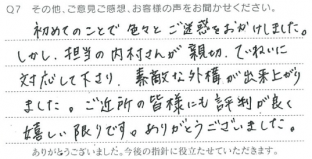 Q7 その他、ご意見ご感想、お客様の声をお聞かせください。
初めてのことで色々とご迷惑をおかけしました。
しかし、担当の内村さんが親切、ていねいに
対応して下さり、素敵な外構が出来上がり
ました。ご近所の皆様にも評判が良く
嬉しい限りです。ありがとうございました。
ありがとうございました。今後の指針に役立たせていただきます。